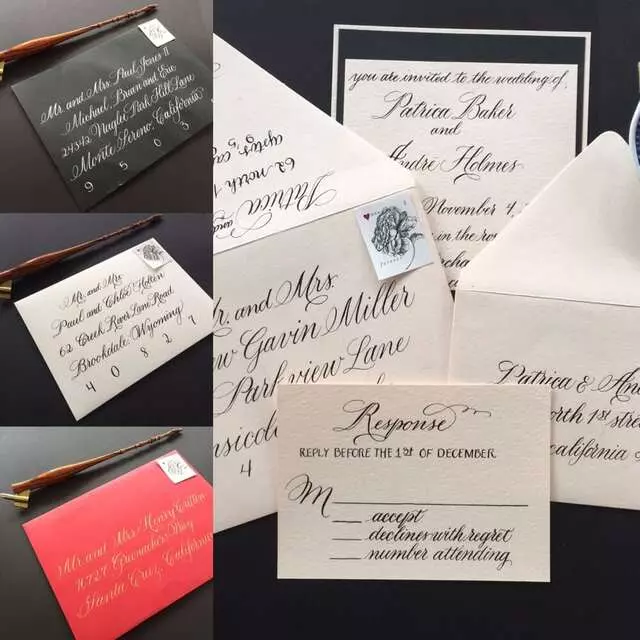 Mr. and Mrs. Paul Jones II
Michael, Brian and Eve
24342 Maglic Park Hill Lane
Monte Sereno, California
9 5 0 3
Mr. and Mrs.
Paul and Chloe Holten
62 Creek River Lane Road
Brookdale, Wyoming
4 0 8 2 7
Mr. and Mrs. Henry
Santa Cruz, California
62 north 1
Patricia and
you are invited to the wedding of,
Patrica Baker
and
Andre Holmes
November 4,
in the
forever
Mr. and Mrs.
Gavin Miller
Parkview Lane
4
Patrica & An
orth 1st stre
california
Response
REPLY BEFORE THE 1st OF DECEMBER.
M
accept
declines with regret
number attending